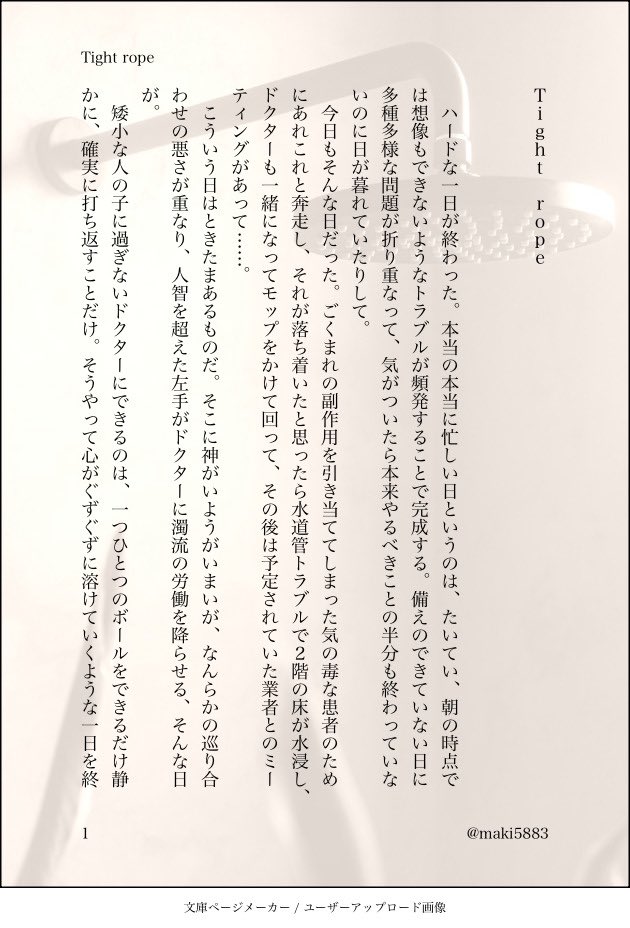 Tight rope
Tight rope
ハードな一日が終わった。本当の本当に忙しい日というのは、たいてい、朝の時点で
は想像もできないようなトラブルが頻発することで完成する。備えのできていない日に
多種多様な問題が折り重なって、気がついたら本来やるべきことの半分も終わっていな
いのに日が暮れていたりして。
今日もそんな日だった。ごくまれの副作用を引き当ててしまった気の毒な患者のため
にあれこれと奔走し、それが落ち着いたと思ったら水道管トラブルで２階の床が水浸し、
ドクターも一緒になってモップをかけて回って、その後は予定されていた業者とのミー
ティングがあって……。
こういう日はときたまあるものだ。そこに神がいようがいまいが、なんらかの巡り合
わせの悪さが重なり、人智を超えた左手がドクターに濁流の労働を降らせる、そんな日
が。
矮小な人の子に過ぎないドクターにできるのは、一つひとつのボールをできるだけ静
かに、確実に打ち返すことだけ。そうやって心がぐずぐずに溶けていくような一日を終
1
@maki5883
文庫ページメーカー / ユーザーアップロード画像